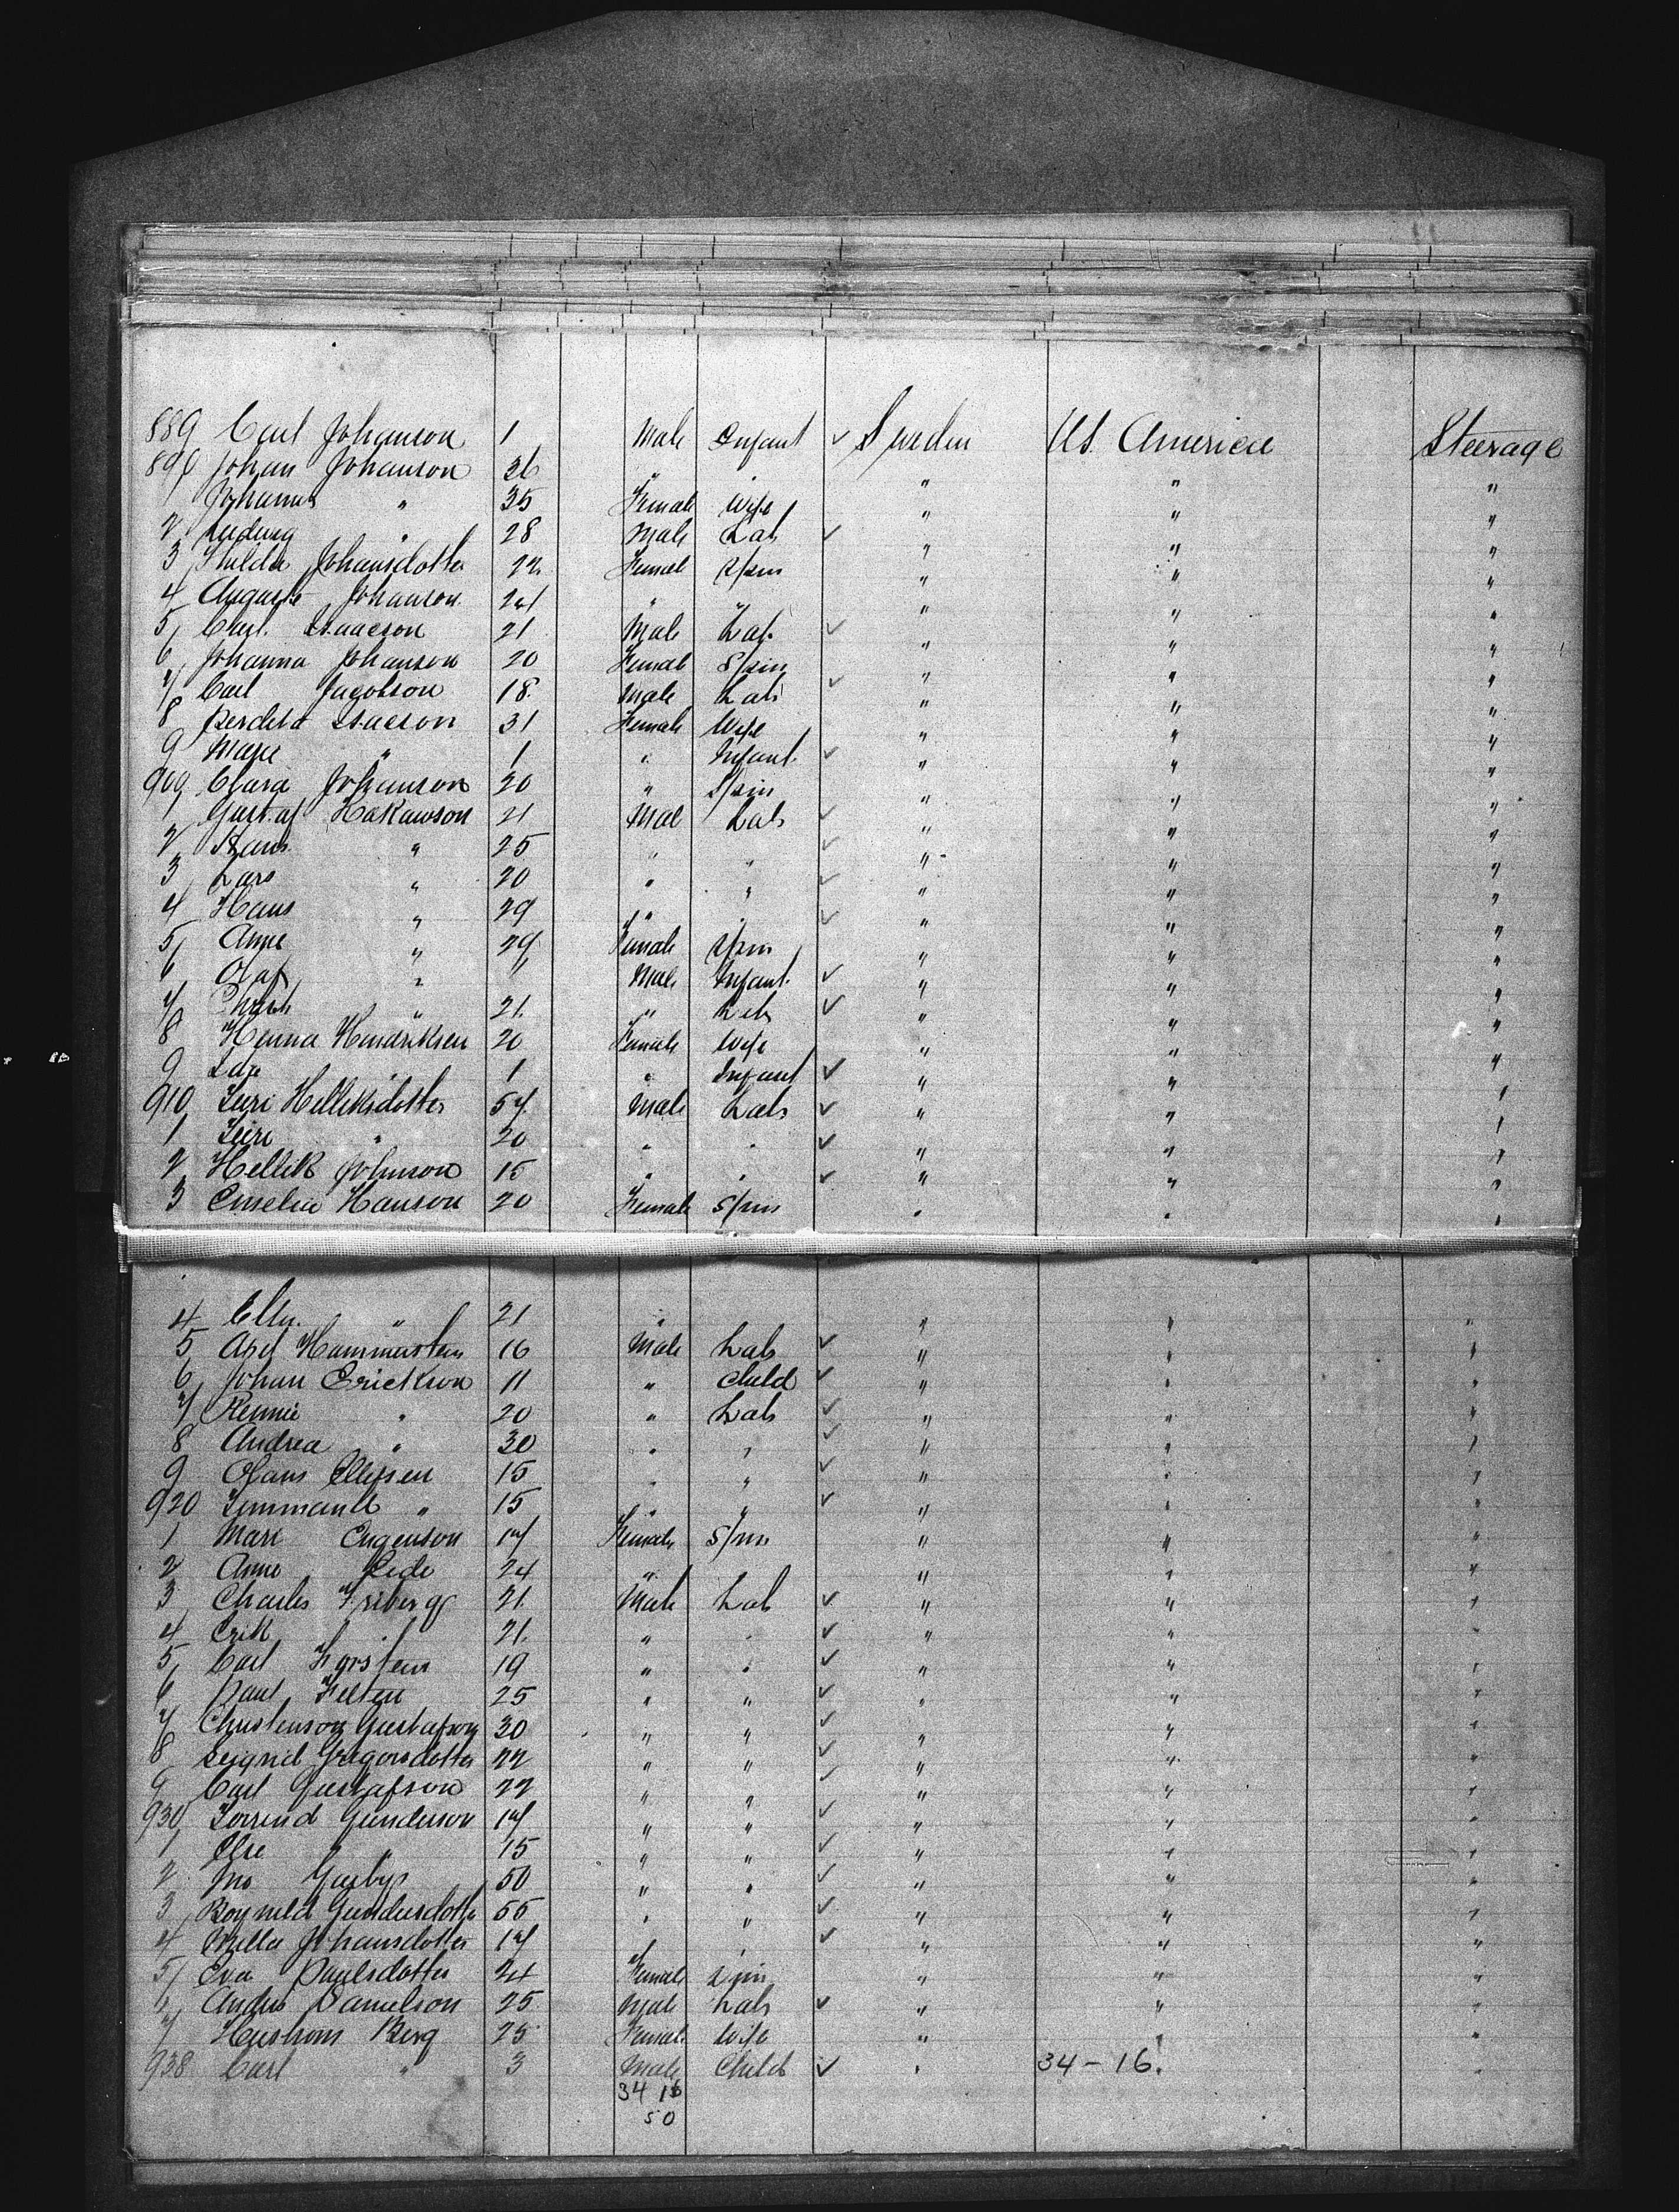 889 Carl Johanson 1 Male Infant ✓ Sweden US. America Steerage
890 Johan Johanson 36 " " " " "
1 Johanna " 35 Female Wife " " "
2 Ludvig " 28 Male Lab ✓ " " "
3 Hulda Johansdotter 22 Female Spin " " "
4 Auguste Johanson 24 " " " " "
5 Carl Isaacson 21 Male Lab ✓ " " "
6 Johanna Johanson 20 Female Spin " " "
7 Carl Jacobson 18 Male Lab ✓ " " "
8 Isacson 31 Female Wife " " "
9 Marie " 1 " Infant ✓ " " "
909 Clara Johanson 20 " Spin " " "
1 Gustaf Hakanson 21 Mal Lab ✓ " " "
2 Hans " 25 " " ✓ " " "
3 Lars " 20 " " ✓ " " "
4 Hans " 29 " " ✓ " " "
5 Anna " 29 Female Spin " " "
6 Olaf " " Male Infant ✓ " " "
7 " 21 " Lab ✓ " " "
8 Hanna Hendriksen 20 Female Wife " " "
9 Ida " 1 " Infant ✓ " " "
910 Helliksdotter 57 Male Lab ✓ " " "
1 " 20 " " ✓ " " "
2 Hellik Johnson 15 " " ✓ " " "
3 Emelia Hanson 20 Female Spin " " "
4 Ellen " 21 " " " "
5 Axel Hammersten 16 Male Lab ✓ " " "
6 Johan Erickson 11 " Child ✓ " " "
7 Rennie " 20 " Lab ✓ " " "
8 Andrea " 30 " " ✓ " " "
9 Ellefsen 15 " " ✓ " " "
920 " 15 " " ✓ " " "
1 Mari Engenson 17 Female Spin " " "
2 Anne 24 " " " "
3 Charles Friberg 21 Male Lab ✓ " " "
4 Erik " 21 " " ✓ " " "
5 Carl 19 " " ✓ " " "
6 Paul 25 " " ✓ " " "
7 Christenson Gustafson 30 " " ✓ " " "
8 Seigrid Gregorsdotter 22 " " ✓ " " "
9 Carl Gustafson 22 " " ✓ " " "
930 Gunderson 17 " " ✓ " " "
1 Else " 15 " " ✓ " " "
2 Jno 50 " " ✓ " " "
3 Gundersdotter 55 " " ✓ " " "
4 Johansdotter 17 " " ✓ " " "
5 Eva Paulsdotter 24 Female Spin " " "
6 Andres Danielson 25 Male Lab ✓ " " "
7 Berg 25 Female Wife " " "
938 Carl " 3 Male Child ✓ " 34-16. "
34 16
50